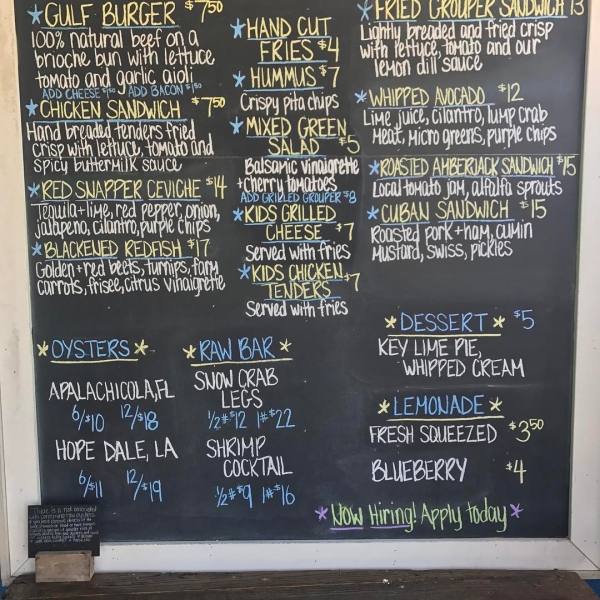 *GULF BURGER $7.50
100% natural beef on a
brioche bun with lettuce
tomato and garlic aioli
ADD CHEESE ADD BACON
*CHICKEN SANDWICH $7.50
Hand breaded tenders fried
crisp with lettuce, tomato and
spicy buttermilk sauce
*RED SNAPPER CEVICHE $14
Tequila + lime, red pepper, onion,
jalapeno, cilantro, purple chips
*BLACKENED REDFISH $17
Golden + red beets, turnips, farm
carrots, frisee, citrus vinaigrette
*HAND CUT
FRIES $4
*HUMMUS $7
Crispy pita chips
*MIXED GREEN
SALAD $5
Balsamic vinaigrette
+ cherry tomatoes
ADD GRILLED GROUPER $8
*KIDS GRILLED
CHEESE $7
Served with fries
*KIDS CHICKEN
TENDERS $7
Served with fries
*FRIED GROUPER SANDWICH 13
Lightly breaded and fried crisp
with lettuce, tomato and our
lemon dill sauce
*WHIPPED AVOCADO $12
Lime juice, cilantro, lump crab
meat, micro greens, purple chips
*ROASTED AMBERJACK SANDWICH $15
Local tomato jam, alfalfa sprouts
*CUBAN SANDWICH $15
Roasted pork + ham, cumin
mustard, swiss, pickles
*OYSTERS*
APALACHICOLA, FL
6/$10 12/$18
HOPE DALE, LA
6/$11 12/$19
*RAW BAR*
SNOW CRAB
LEGS
1/2# $12 1# $22
SHRIMP
COCKTAIL
1/2# $9 1# $16
*DESSERT* $5
KEY LIME PIE,
WHIPPED CREAM
*LEMONADE*
FRESH SQUEEZED $3.50
BLUEBERRY $4
*Now Hiring! Apply today*
There is a risk associated